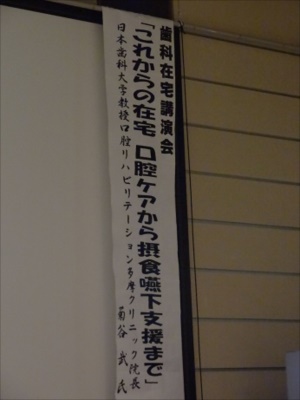 歯科在宅講演会
「これからの在宅 口腔ケアから摂食嚥下支援まで」
日本歯科大学教授口腔リハビリテーション多摩クリニック院長 菊谷 武 氏